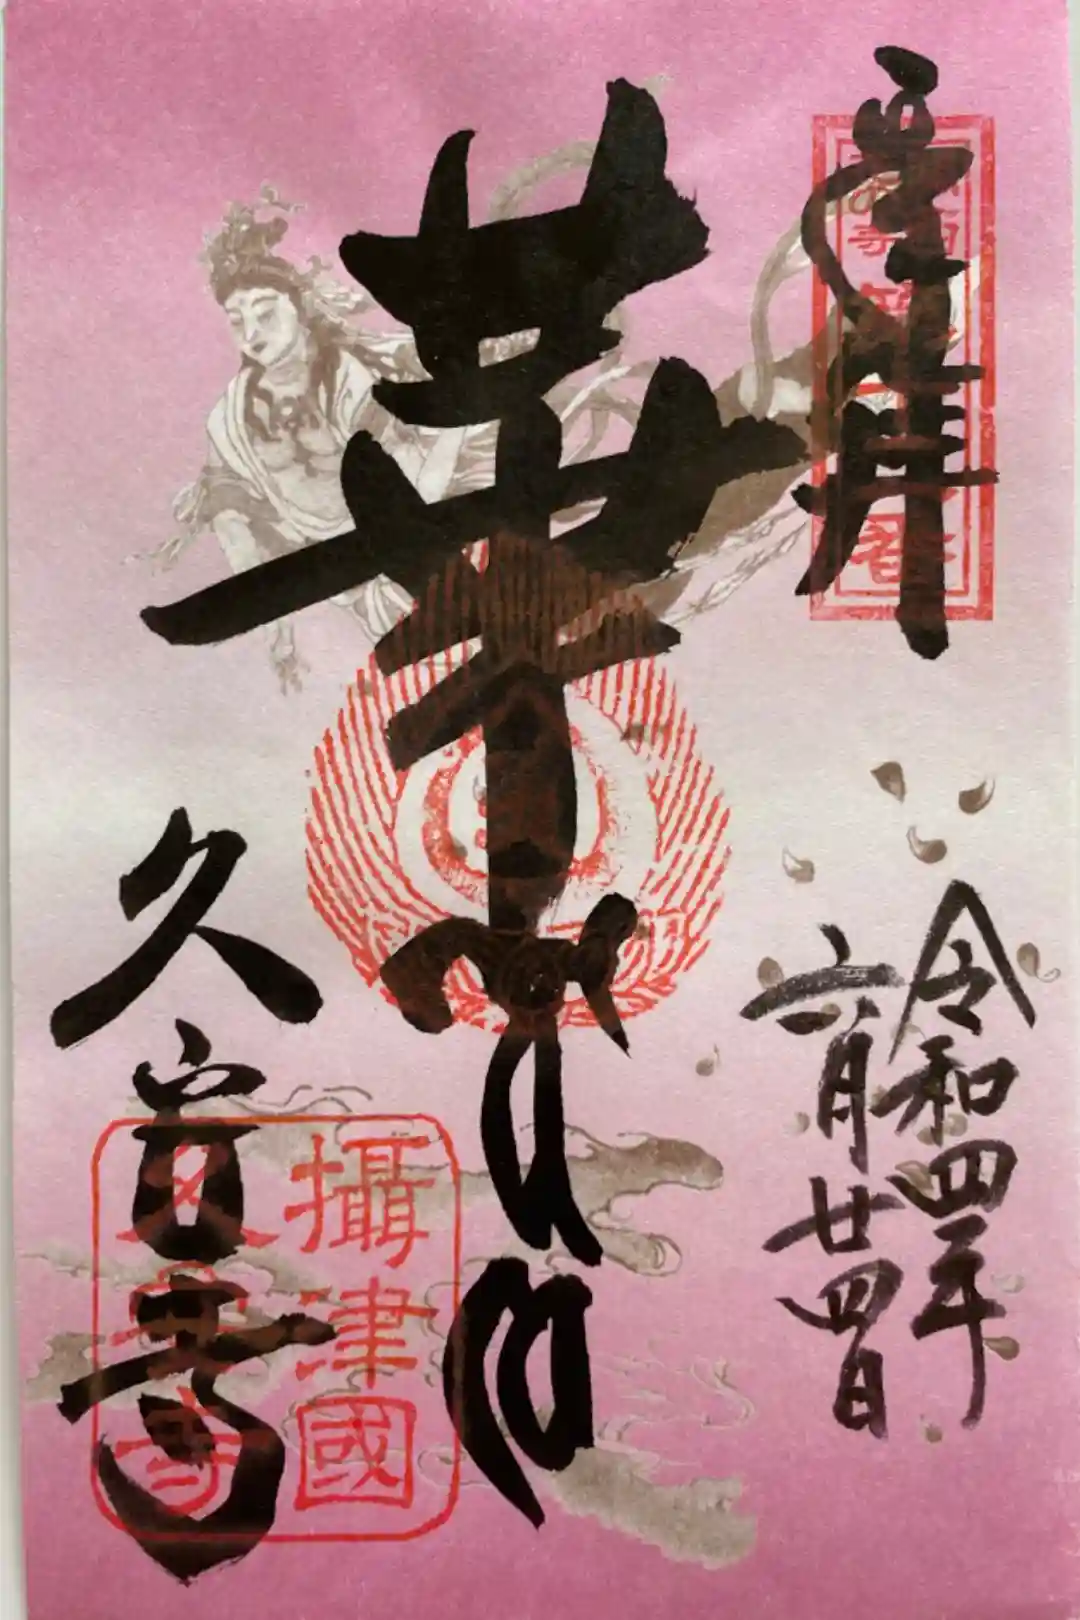 奉拝
令和四年
六月廿四日
華
攝津國
久安寺
久安寺